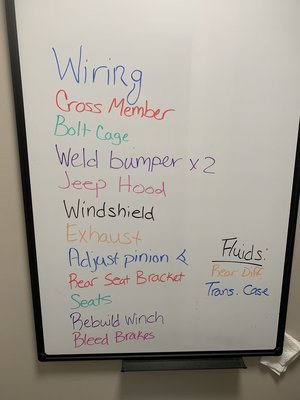 Wiring
Cross Member
Bolt Cage
Weld bumper x 2
Jeep Hood
Windshield
Exhaust
Adjust pinion ∢
Rear Seat Bracket
Seats
Rebuild Winch
Bleed Brakes
Fluids:
Rear Diff
Trans. Case